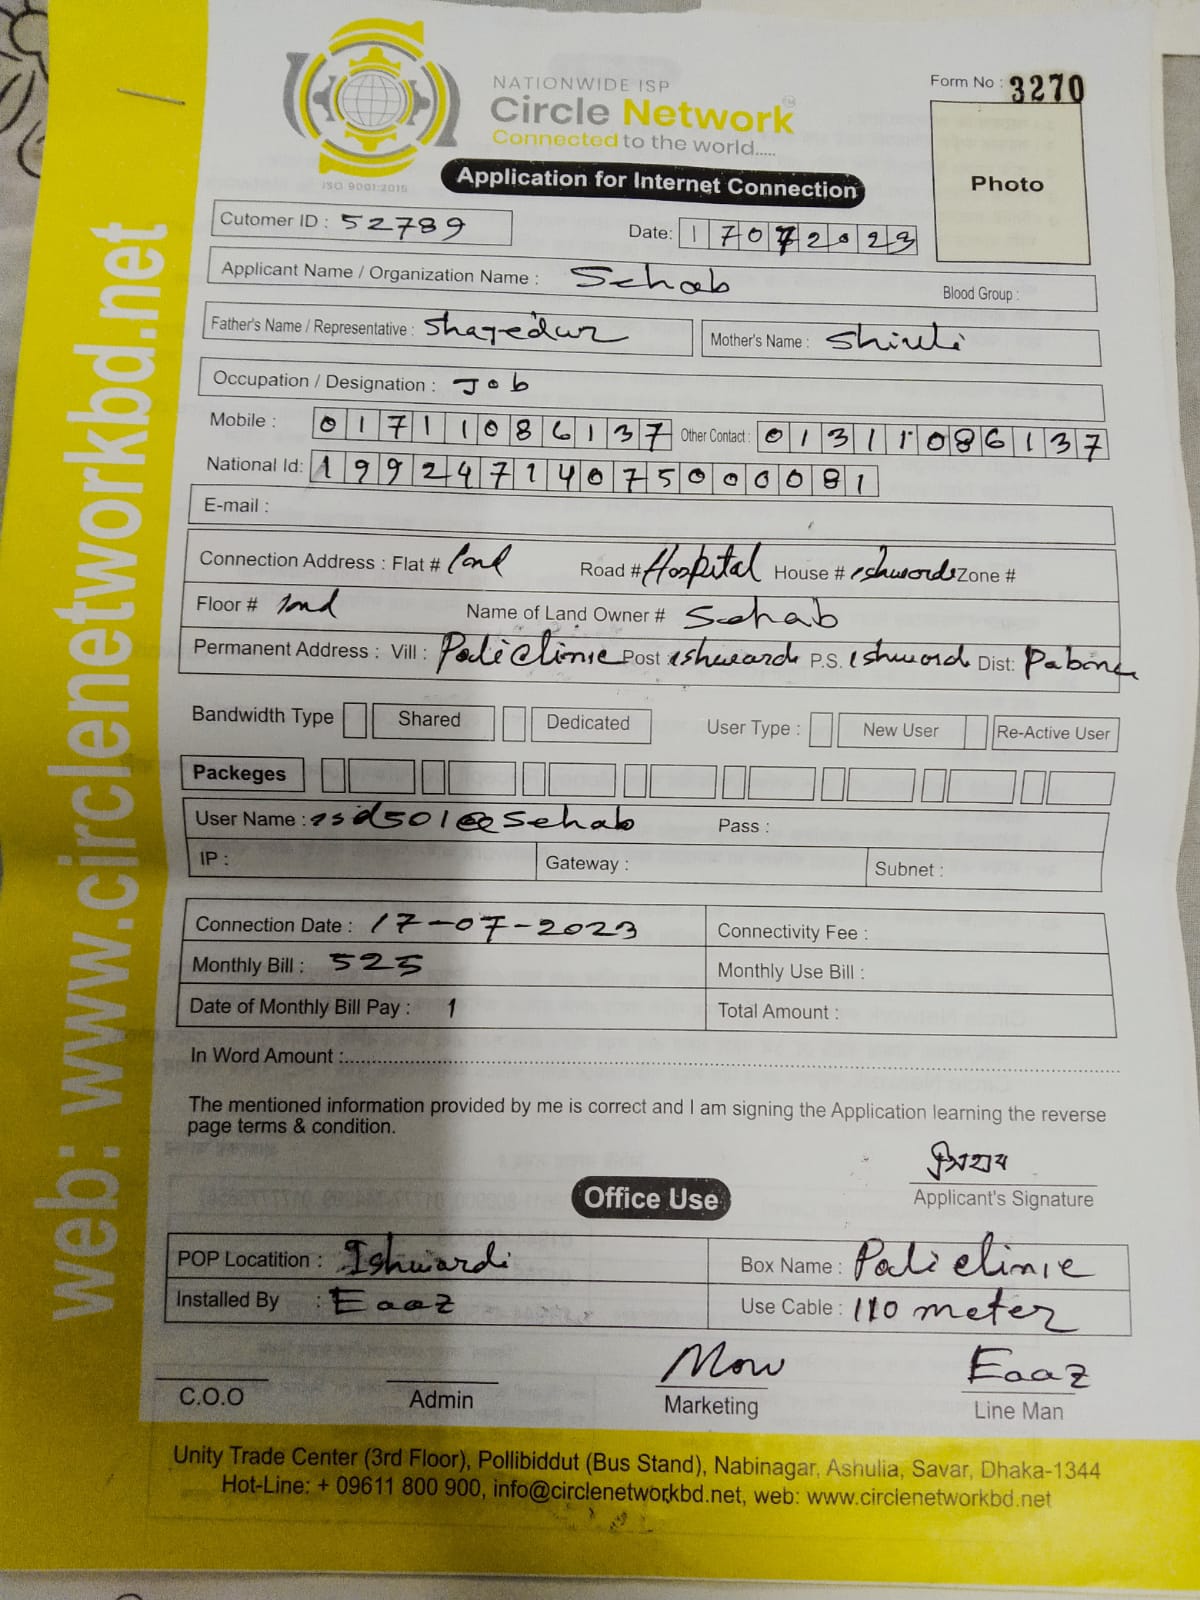 NATIONWIDE ISP
Circle Network
Connected to the world.....
ISO 9001:2015
Form No : 3270
Photo
Application for Internet Connection
Cutomer ID : 52789
Date: 17072023
Applicant Name / Organization Name : Sehab
Blood Group :
Father's Name / Representative : Shayedur
Mother's Name :
Occupation / Designation : Job
Mobile : 01711086137 Other Contact : 01311086137
National Id: 19924714075000081
E-mail :
Connection Address : Flat # Road # Hospital House # Zone #
Floor # Name of Land Owner # Sehab
Permanent Address : Vill : Policlinic Post P.S. Dist: Pabna
Bandwidth Type Shared Dedicated User Type : New User Re-Active User
Packeges
User Name : Pass :
IP : Gateway : Subnet :
Connection Date : 17-07-2023 Connectivity Fee :
Monthly Bill : 525 Monthly Use Bill :
Date of Monthly Bill Pay : 1 Total Amount :
In Word Amount :
The mentioned information provided by me is correct and I am signing the Application learning the reverse
page terms & condition.
Applicant's Signature
Office Use
POP Locatition : Ishwardi Box Name : Policlinic
Installed By : Eaaz Use Cable : 110 meter
Mow Eaaz
C.O.O Admin Marketing Line Man
Unity Trade Center (3rd Floor), Pollibiddut (Bus Stand), Nabinagar, Ashulia, Savar, Dhaka-1344
Hot-Line: + 09611 800 900, info@circlenetworkbd.net, web: www.circlenetworkbd.net
web: www.circlenetworkbd.net